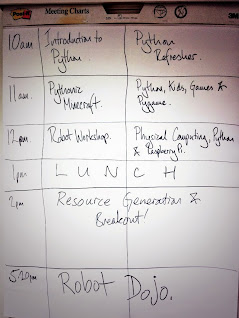 Post-it
Meeting Charts
3M
10am
Introduction to
Python
Python
Refresher.
11am.
Pythonic
Minecraft.
Python, Kids, Games &
Pygame.
12pm
Robot Workshop.
Physical Computing, Python
& Raspberry Pi.
1pm
L U N C H
2pm
Resource Generation &
Breakout!
Robot Dojo.